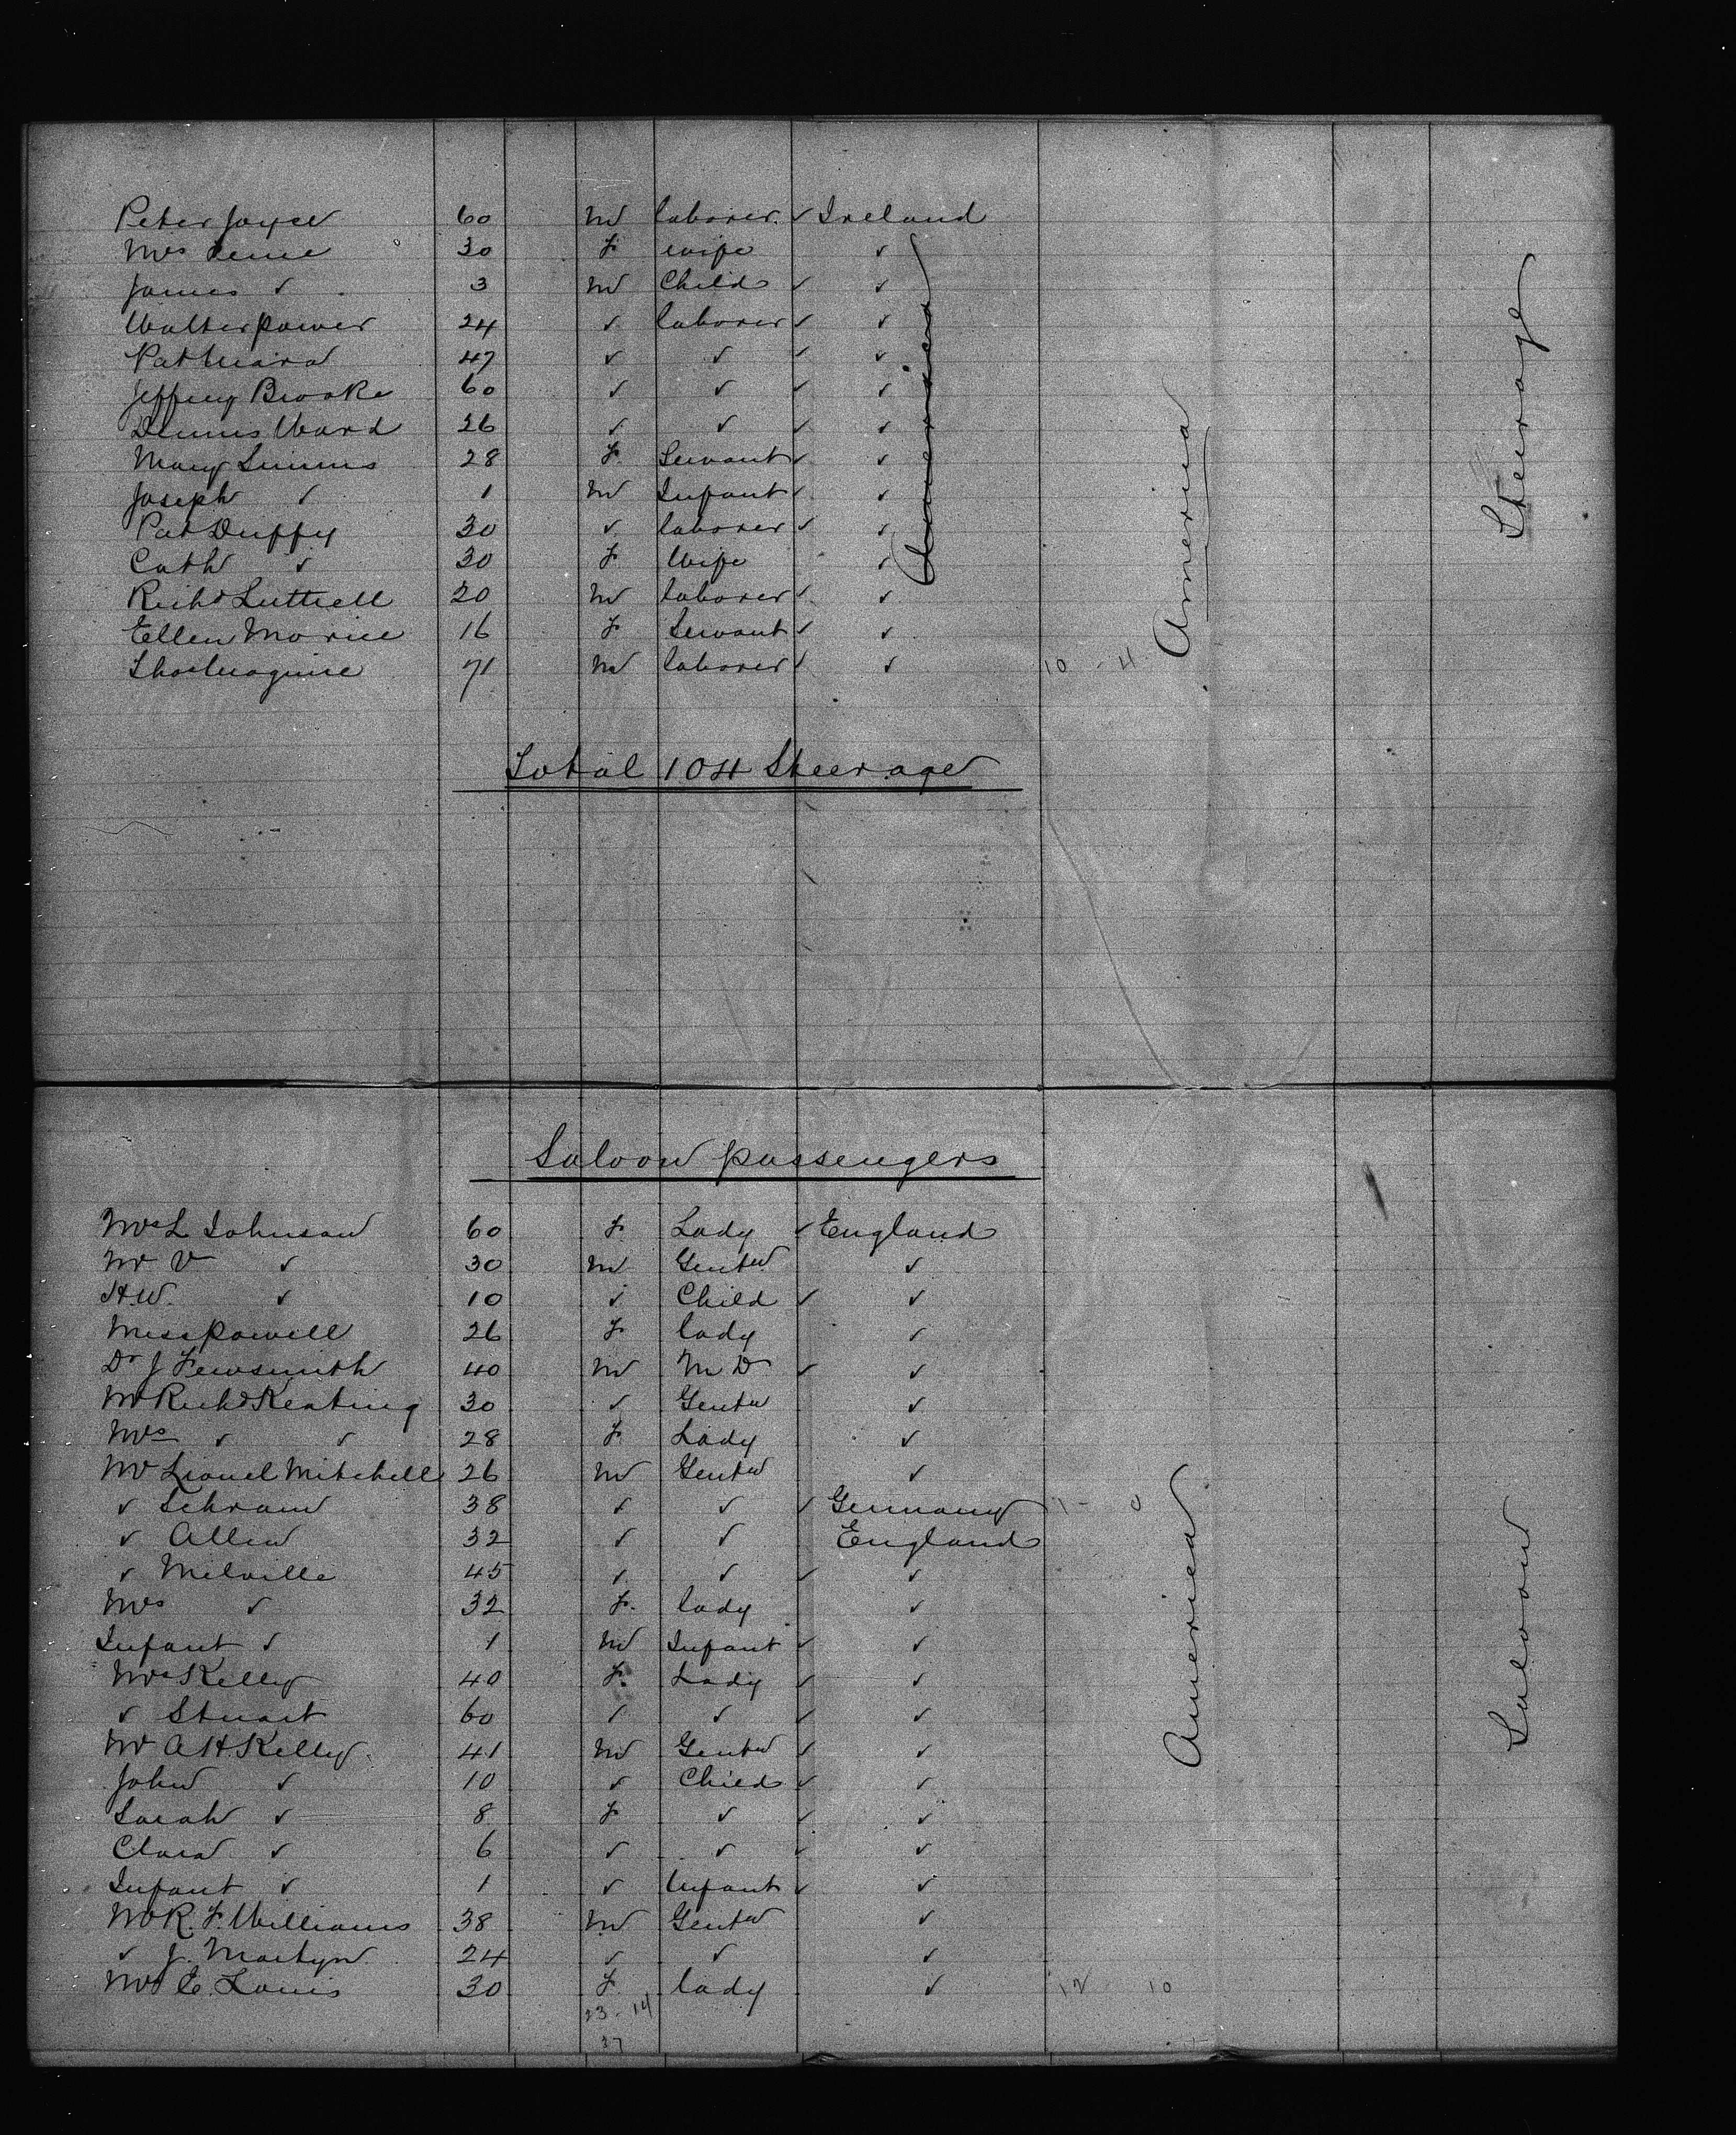 Peter Joyce 60 M laborer ✓ Ireland
Mrs 30 F wife ✓
James ✓ 3 M Child ✓ ✓
Walter Power 24 ✓ laborer ✓ ✓
Pat 47 ✓ ✓ ✓ ✓
Jeffrey Brooke 60 ✓ ✓ ✓ ✓
Dennis Ward 26 ✓ ✓ ✓ ✓
Mary Simms 28 F Servant ✓ ✓
Joseph ✓ 1 M Infant ✓ ✓
Pat Duffy 30 ✓ laborer ✓ ✓
Cath ✓ 30 F Wife ✓
Richd Luttrell 20 M laborer ✓ ✓
Ellen Morice 16 F Servant ✓ ✓
Thos Maguire 71 M laborer ✓ ✓ 10 - 4
America
America
Steerage
Total 104 Steerage
Saloon passengers
Mrs L Johnson 60 F Lady ✓ England
Mr V ✓ 30 M Gentn ✓
H.W. ✓ 10 ✓ Child ✓ ✓
Miss Powell 26 F lady ✓
Dr J Fewsmith 40 M M D ✓ ✓
Mr Richd Keating 30 ✓ Gentn ✓
Mrs ✓ ✓ 28 F Lady ✓
Mr Lionel Mitchell 26 M Gentn ✓
✓ Schram 38 ✓ ✓ ✓ Germany 1 - 0
✓ Allen 32 ✓ ✓ England
✓ Melville 45 ✓ ✓ ✓ ✓
Mrs ✓ 32 F. lady ✓
Infant ✓ 1 M Infant ✓ ✓
Mrs Kelly 40 F. Lady ✓ ✓
✓ Stuart 60 ✓ ✓ ✓ ✓
Mr A H. Kelly 41 M Gentn ✓ ✓
John ✓ 10 ✓ Child ✓ ✓
Sarah ✓ 8 F ✓ ✓ ✓
Clara ✓ 6 ✓ ✓ ✓ ✓
Infant ✓ 1 ✓ Infant ✓ ✓
Mr R. F. Williams 38 M Gentn ✓
✓ J. Martyn 24 ✓ ✓ ✓
Mrs E. Louis 30 F lady ✓ 12 10
23 - 14
37
America
Saloon